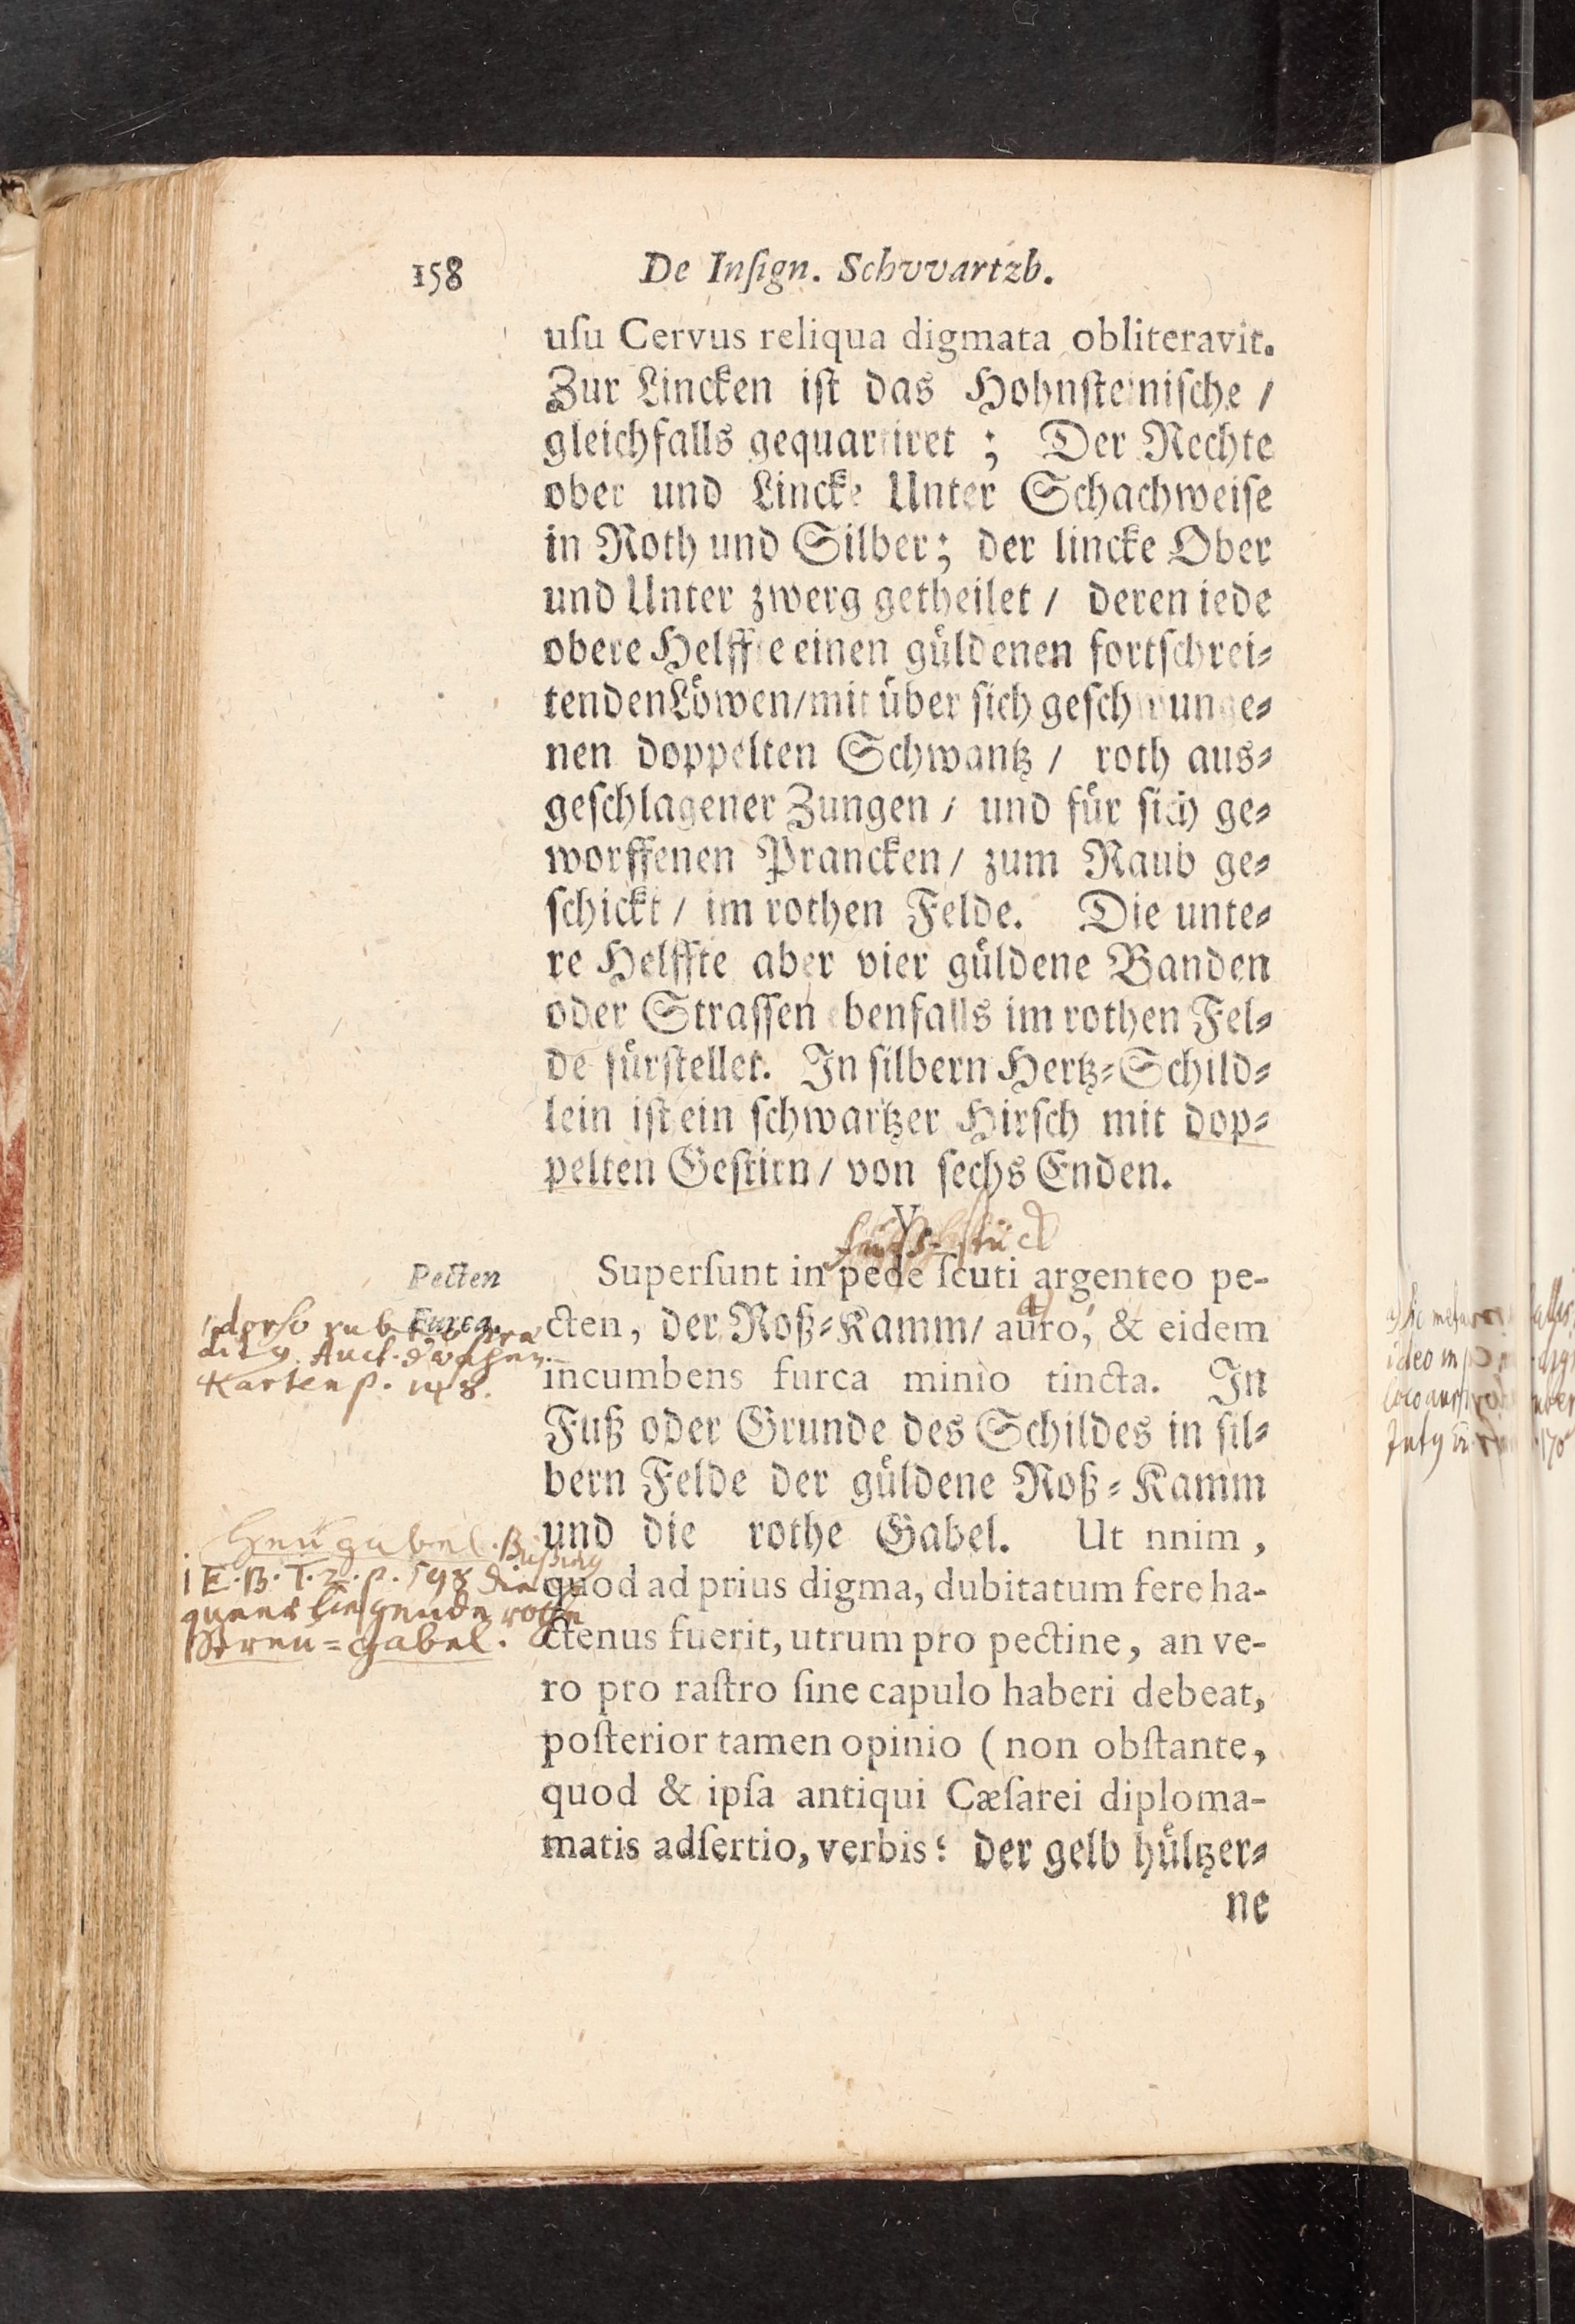 158 De Inſign. Schvvartzb.
uſu Cervus reliqua digmata obliteravit.
Zur Lincken iſt das Hohnſteiniſche /
gleichfalls gequartiret ; Der Rechte
ober und Lincke Unter Schachweiſe
in Roth und Silber; der lincke Ober
und Unter zwerg getheilet / deren iede
obere Helffte einen guͤldenen fortſchrei⸗
tenden Loͤwen/mit uͤber ſich geſchwunge⸗
nen doppelten Schwantz / roth aus⸗
geſchlagener Zungen / und fuͤr ſich ge⸗
worffenen Prancken / zum Raub ge⸗
ſchickt / im rothen Felde. Die unte⸗
re Helffte aber vier guͤldene Banden
oder Straſſen ebenfalls im rothen Fel⸗
de fuͤrſtellet. In ſilbern Hertz⸗Schild⸗
lein iſt ein ſchwartzer Hirſch mit dop⸗
pelten Geſtirn / von ſechs Enden.
V.
Pecten
Superſunt in pede ſcuti argenteo pe-
Furca.
cten, der Roß⸗Kamm/ auro, & eidem
incumbens furca minio tincta. In
Karten p. 148.
Fuß oder Grunde des Schildes in ſil⸗
bern Felde der guͤldene Roß⸗Kamm
und die rothe Gabel. Ut nnim,
Heugabel.
quod ad prius digma, dubitatum fere ha-
p. 598 die
queer liegende rothe
ctenus fuerit, utrum pro pectine, an ve-
Streu=gabel.
ro pro raſtro ſine capulo haberi debeat,
poſterior tamen opinio (non obſtante,
quod & ipſa antiqui Cæſarei diploma-
matis adſertio, verbis: der gelb huͤltzer⸗
ne